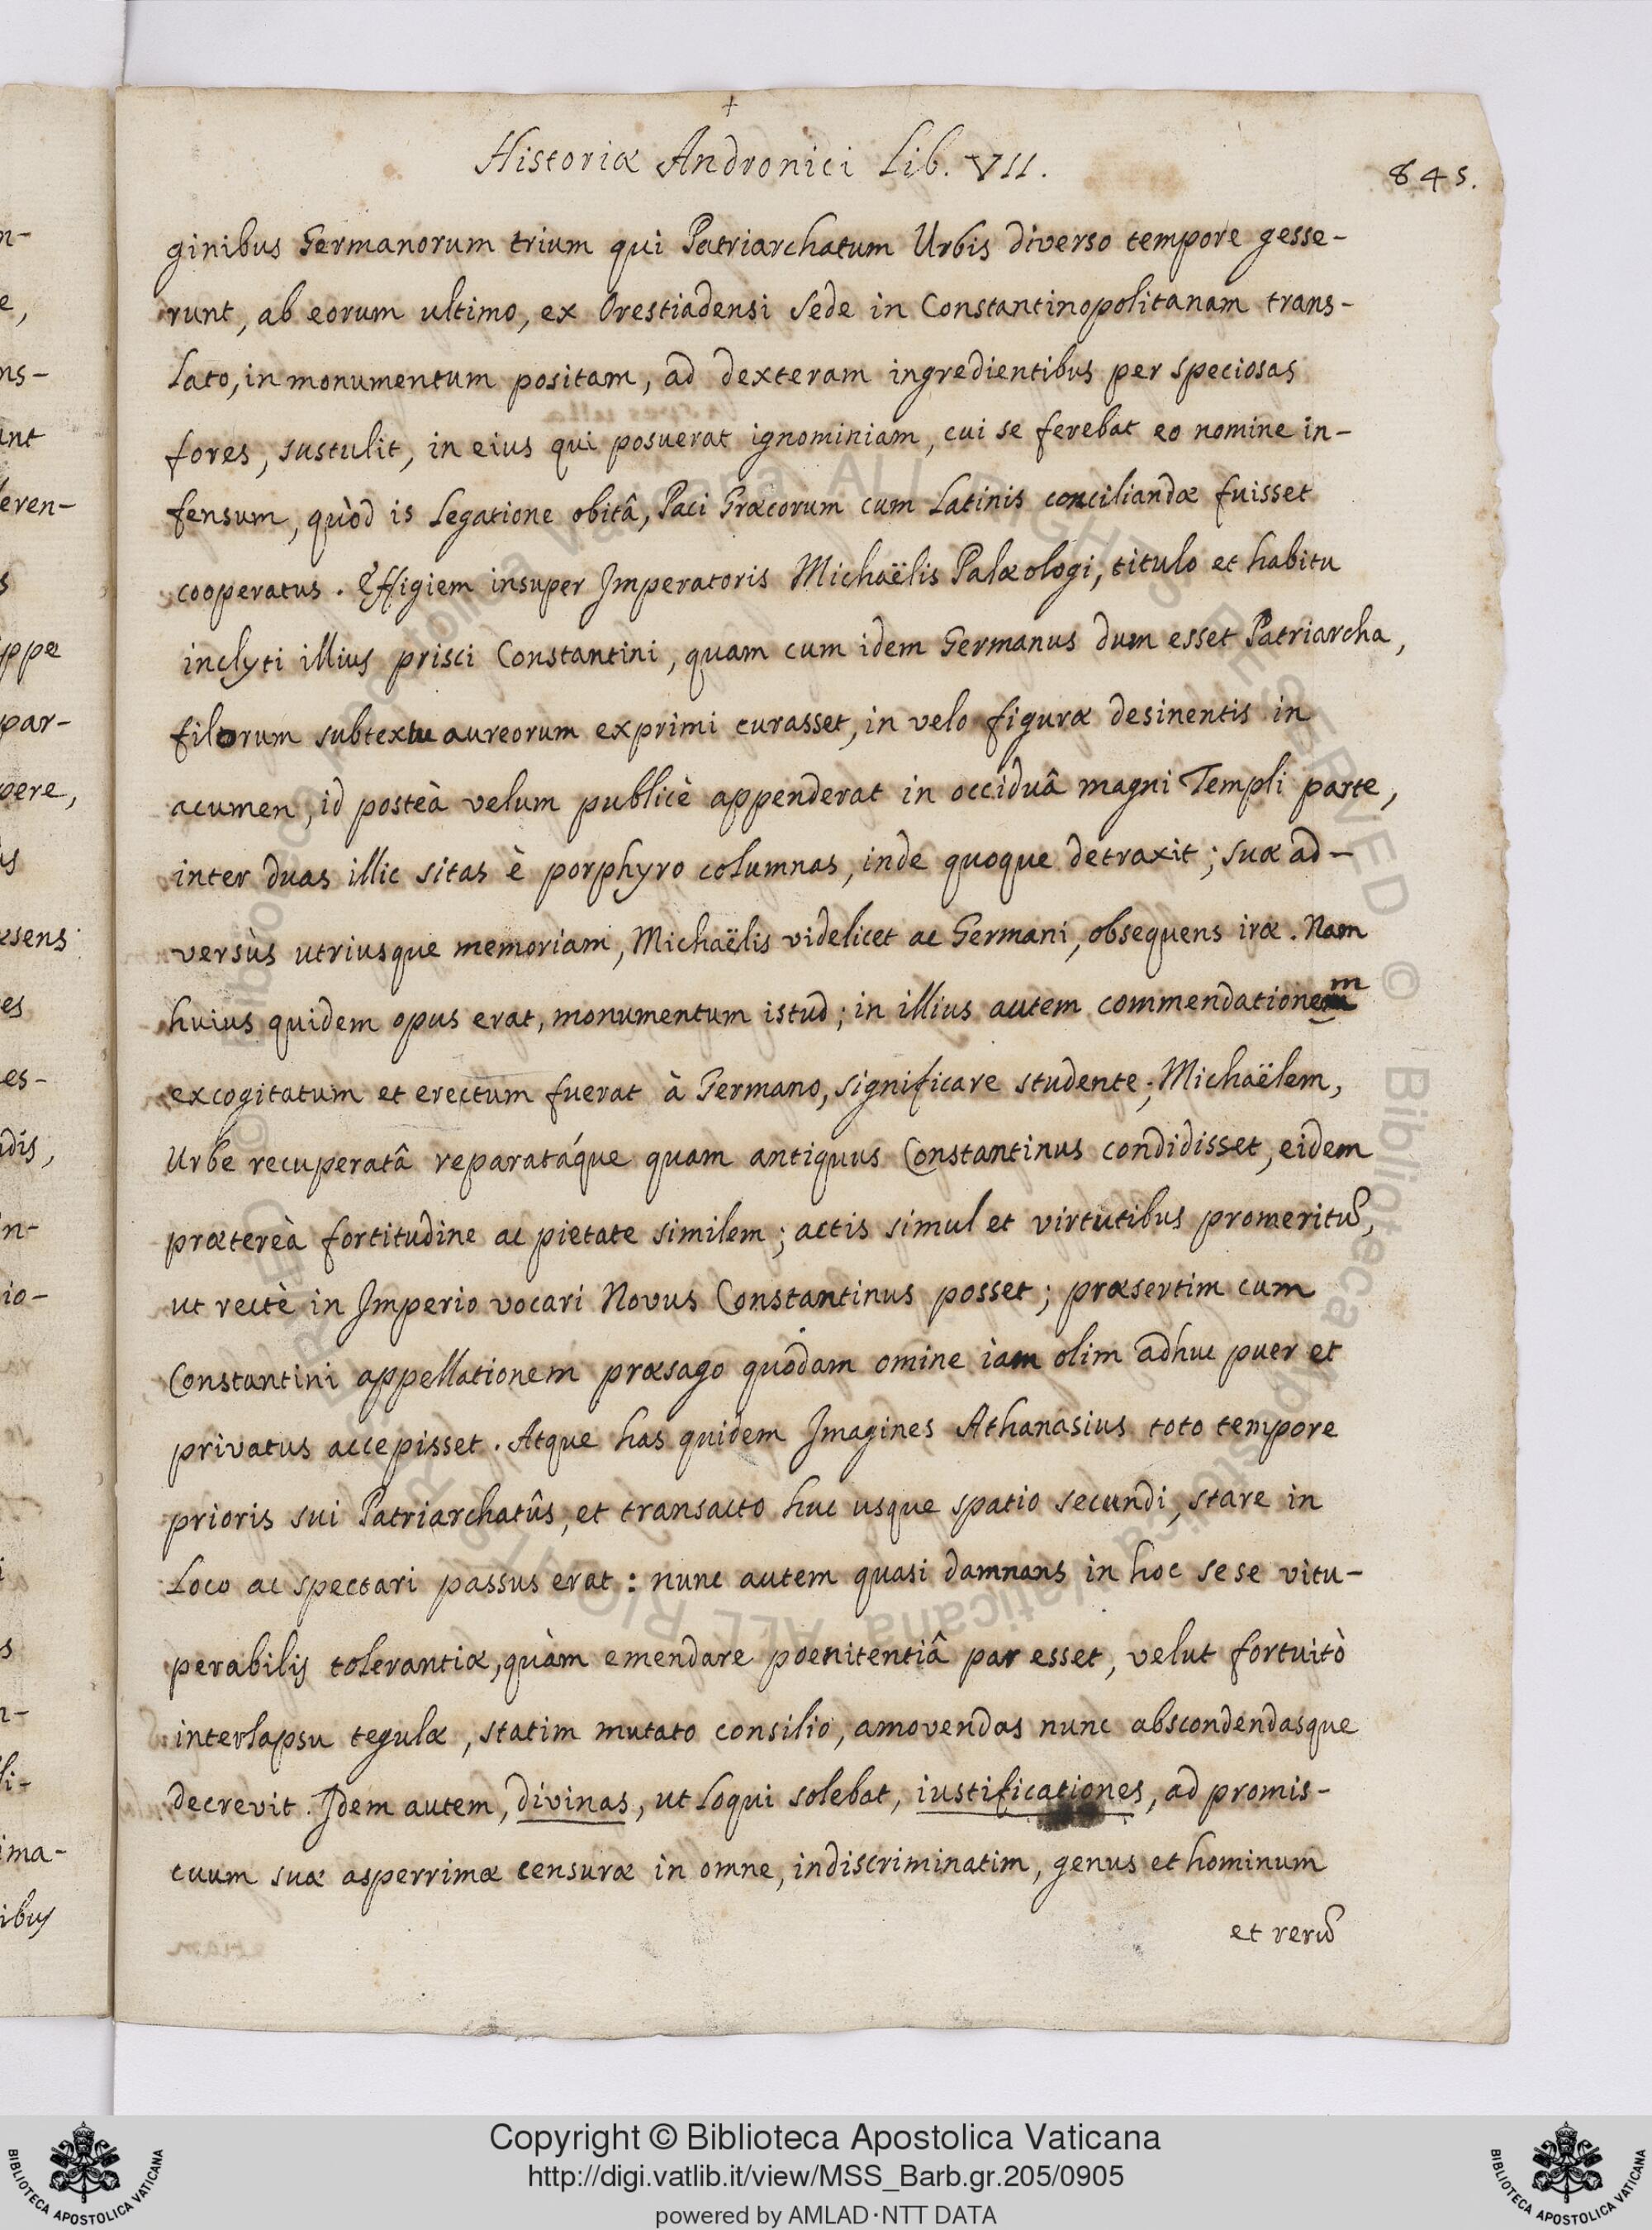 Historiæ Andronici Lib. VII.
845.
ginibus Germanorum trium qui Patriarchatum Urbis diverso tempore gesse-
runt, ab eorum ultimo, ex Orestiadensi sede in Constantinopolitanam trans-
lato, in monumentum positam, ad dexteram ingredientibus per speciosas
fores, sustulit, in eius qui posuerat ignominiam, cui se ferebat eo nomine in-
fensum, quòd is legatione obitâ, Paci Græcorum cum Latinis conciliandæ fuisset
cooperatus. Effigiem insuper Imperatoris Michaëlis Palæologi, titulo et habitu
inclyti illius prisci Constantini, quam cum idem Germanus dum esset Patriarcha,
filorum subtextu aureorum exprimi curasset, in velo figuræ desinentis in
acumen, id posteà velum publicè appenderat in occiduâ magni Templi parte,
inter duas illic sitas è porphyro columnas, inde quoque detraxit; suæ ad-
versùs utriusque memoriam, Michaëlis videlicet ac Germani, obsequens iræ. Nam
huius quidem opus erat, monumentum istud; in illius autem commendationem
excogitatum et erectum fuerat à Germano, significare studente, Michaëlem,
Urbe recuperatâ reparatáque quam antiquus Constantinus condidisset, eidem
prætereà fortitudine ac pietate similem; actis simul et virtutibus promeritũ,
ut rectè in Imperio vocari Novus Constantinus posset; præsertim cum
Constantini appellationem præsago quodam omine iàm olim adhuc puer et
privatus accepisset. Atque has quidem Imagines Athanasius toto tempore
prioris sui Patriarchatûs, et transacto huc usque spatio secundi, stare in
loco ac spectari passus erat: nunc autem quasi damnans in hoc sese vitu-
perabilis tolerantiæ, quàm emendare poenitentiâ par esset, velut fortuitò
interlapsu tegulæ, statim mutato consilio, amovendas nunc abscondendasque
decrevit. Idem autem, divinas, ut loqui solebat, iustificationes, ad promis-
cuum suæ asperrimæ censuræ in omne, indiscriminatim, genus et hominum
et rerũ
Copyright © Biblioteca Apostolica Vaticana
http://digi.vatlib.it/view/MSS_Barb.gr.205/0905
powered by AMLAD·NTT DATA
BIBLIOTECA APOSTOLICA VATICANA
BIBLIOTECA APOSTOLICA VATICANA